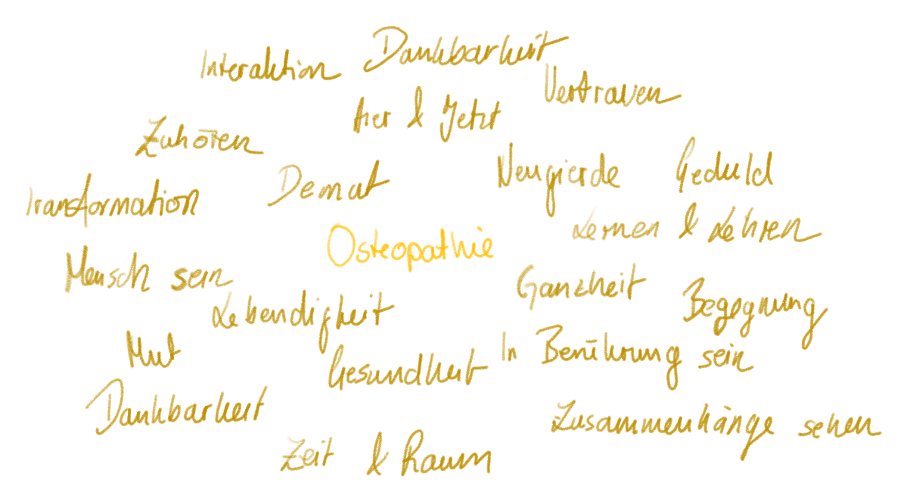 Interaktion Dankbarkeit
Vertrauen
hier & Jetzt
Zuhören
Neugierde Geduld
Transformation Demut
Lernen & Lehren
Osteopathie
Mensch sein
Ganzheit Begegnung
Lebendigkeit
Mut
Gesundheit In Berührung sein
Dankbarkeit
Zusammenhänge sehen
Zeit & Raum